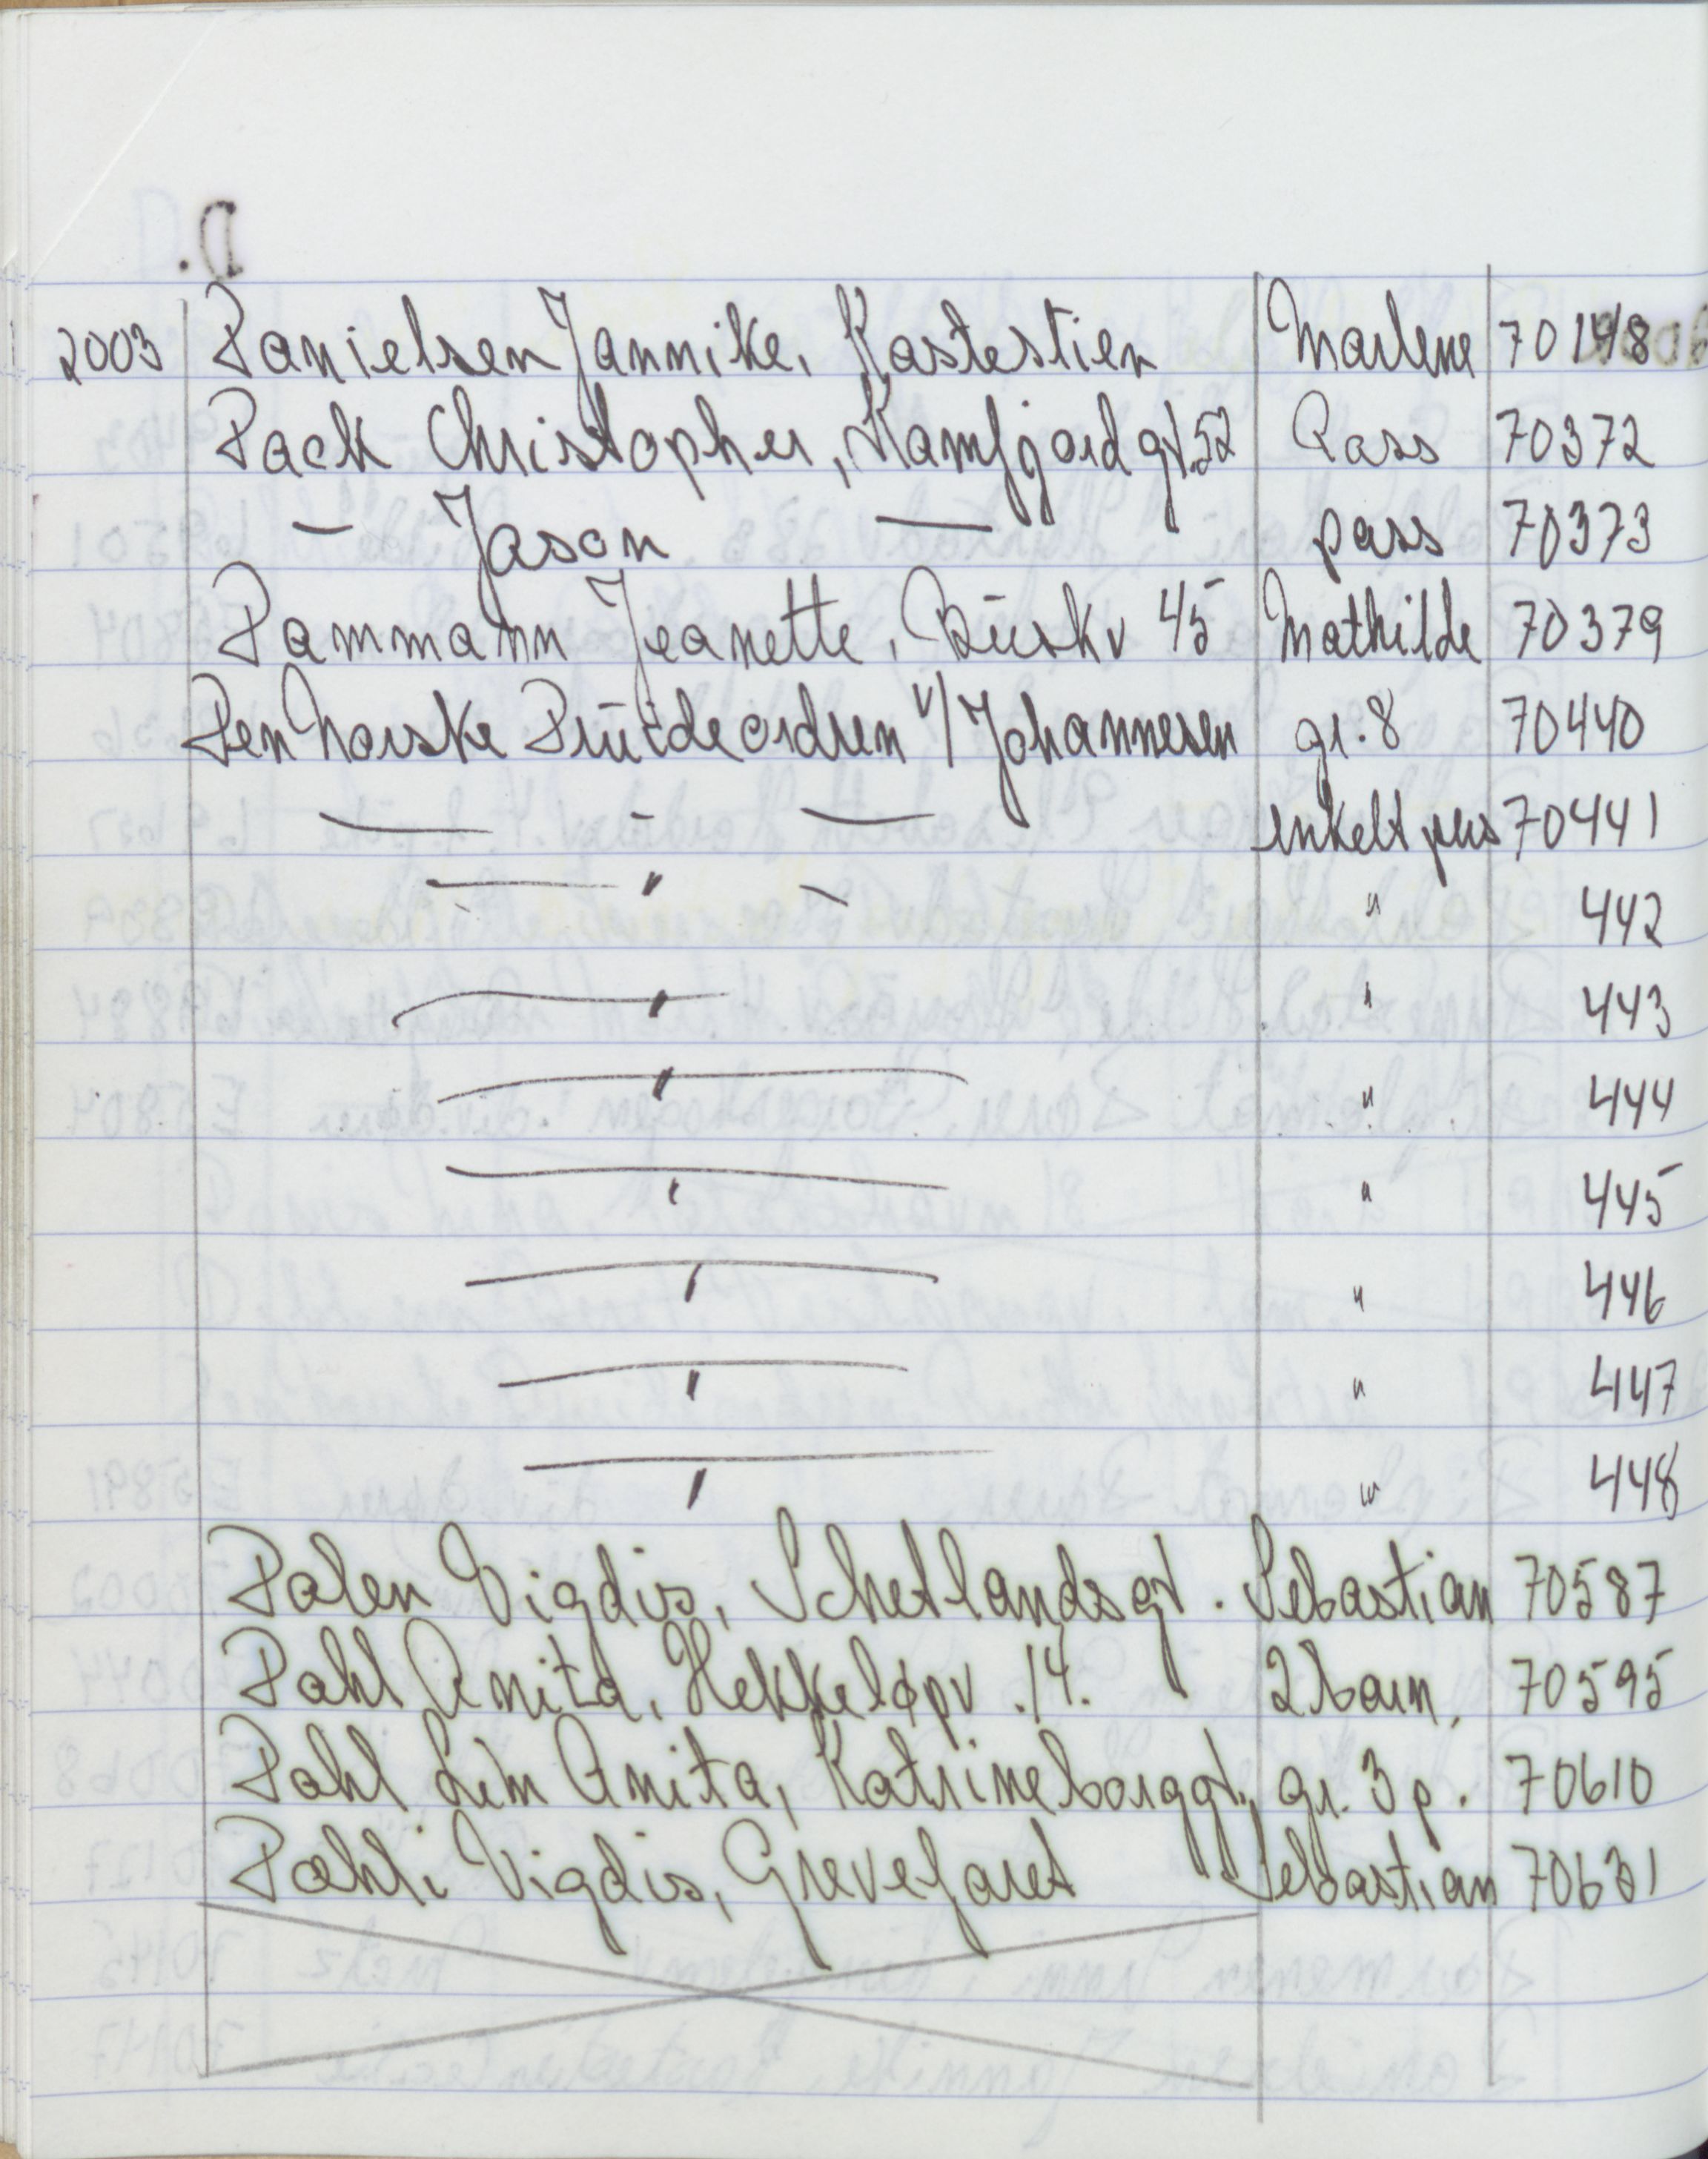 D.
2003 Danielsen Jannike, Kastestien Marlene 70148
Dack Christopher, Kamfjord gt. 52 Pass 70372
— Jason — pass 70373
Dammann Jeanette, Buskv 45 Mathilde 70379
Den Norske Druideordren v/ Johannesen gr. 8 70440
— - — enkelt pers 70441
— " — " 442
— " — " 443
— " — " 444
— " — " 445
— " — " 446
— " — " 447
— " — " 448
Dalen Vigdis, Schetlandsgt. Sebastian 70587
Dahl Anita, Hekkeløpv. 14. 2 barn, 70595
Dahl Lim Anita, Katrineborggt., gr. 3 p. 70610
Dahli Vigdis, Grevefaret Sebastian 70631